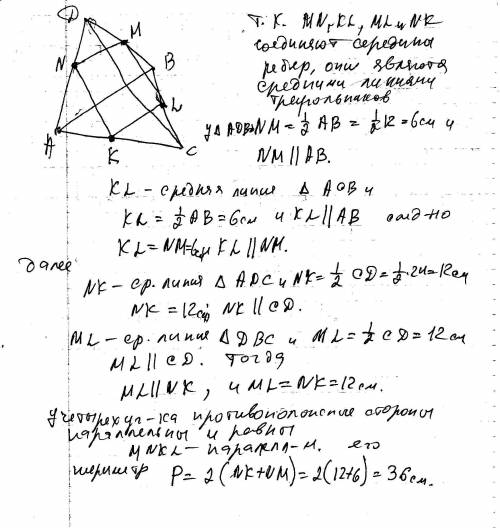 D
M
N
B
L
A
K
C
Т.К. MN, KL, ML и NK
соединяют середины
ребер, они являются
средними линиями
треугольников
у △ADB NM = 1/2 AB = 1/2 12 = 6см и
NM || AB.
KL – средняя линия △ ACB и
KL = 1/2 AB = 6см и KL || AB след-но
KL = NM = 6см KL || NM.
далее
NK – ср. линия △ ADC и NK = 1/2 CD = 1/2 · 24 = 12см
NK = 12см NK || CD.
ML – ср. линия △ DBC и ML = 1/2 CD = 12см
ML || CD. тогда
ML || NK, и ML = NK = 12см.
У четырех уг-ка противоположные стороны
параллельны и равны
MNKL – паралел-м. его
периметр P = 2(NK+NM) = 2(12+6) = 36см.